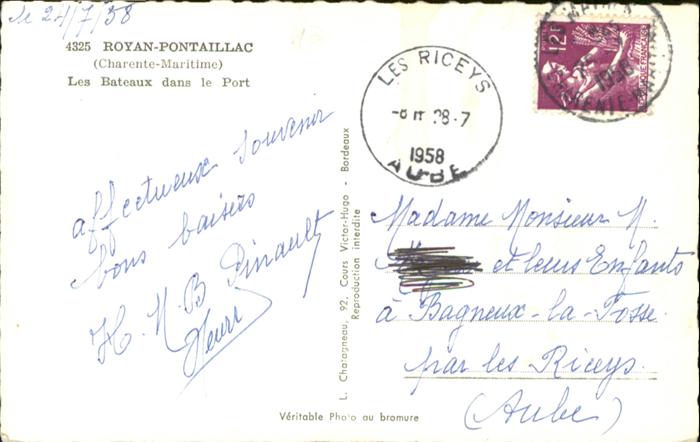 le 24/7/58
4325 ROYAN-PONTAILLAC
(Charente-Maritime)
Les Bateaux dans le Port
affectueux souvenir
bons baisers
H. M. B Pinault
Henri
L. Chatagneau, 92, Cours Victor-Hugo - Bordeaux
Reproduction interdite
Véritable Photo au bromure
LES RICEYS
28-7
1958
AUBE
12F
1958
CHARENTE-MARITIME
Madame Monsieur M.
et leurs Enfants
à Bagneux-la-Fosse
par les Riceys.
(Aube)